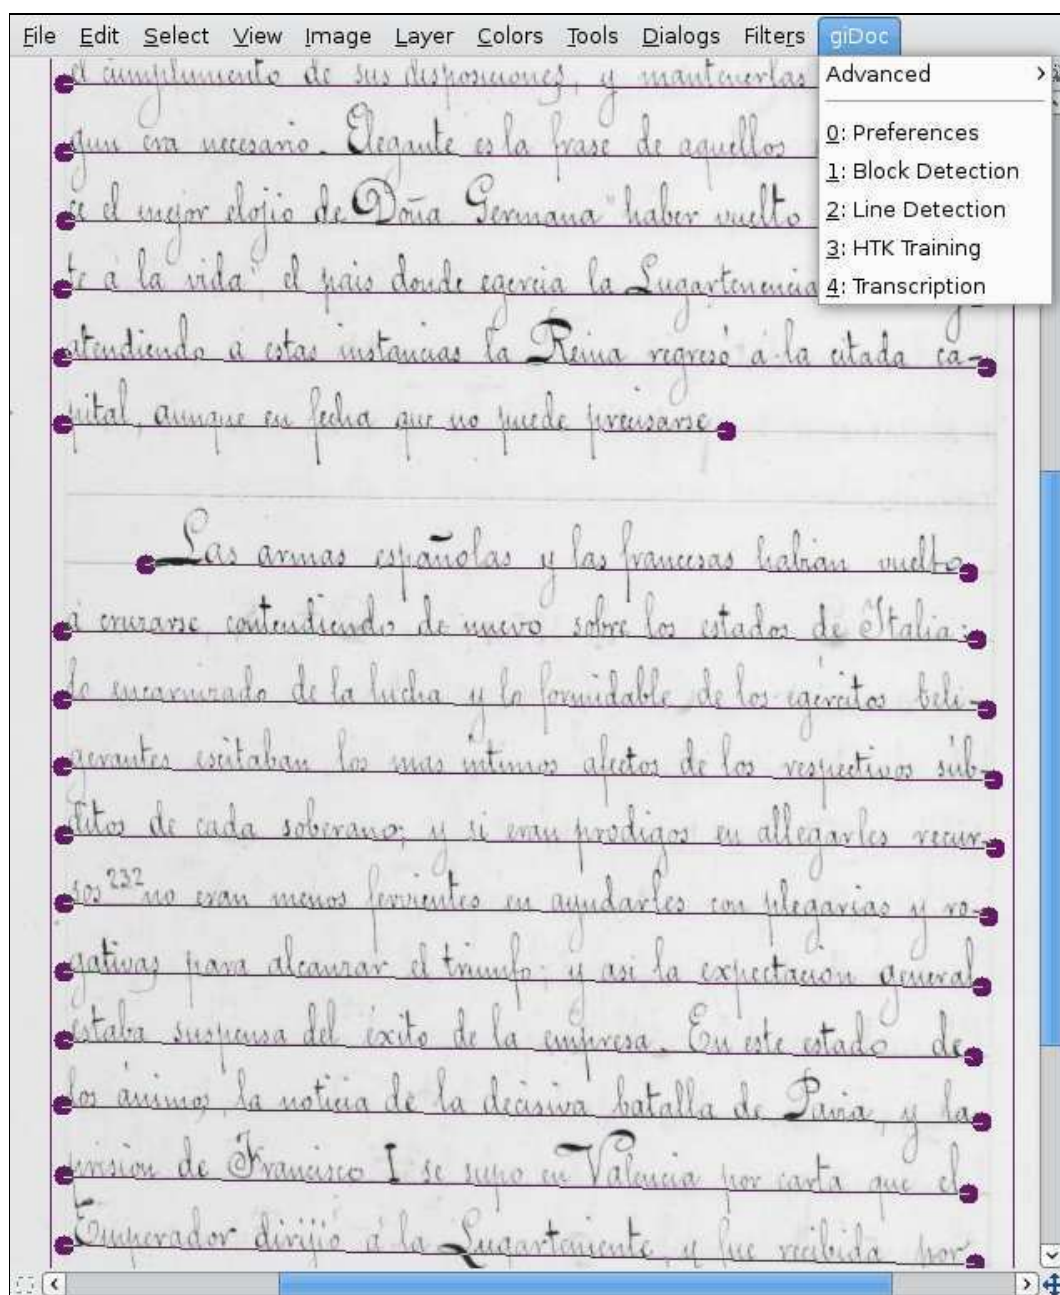 File Edit Select View Image Layer Colors Tools Dialogs Filters giDoc
Advanced
0: Preferences
1: Block Detection
2: Line Detection
3: HTK Training
4: Transcription
el cumplimiento de sus disposiciones, y mantenerlas
gun era necesario. Elegante es la frase de aquellos
ce el mejor elojio de Doña Germana "haber vuelto
te á la vida", el pais donde egercia la Lugartenencia
atendiendo á estas instancias la Reina regresó á la citada ca-
pital, aunque en fecha que no puede precisarse.
Las armas españolas y las francesas habian vuelto
á cruzarse, contendiendo de nuevo sobre los estados de Italia:
lo encarnizado de la lucha y lo formidable de los egércitos beli-
gerantes escitaban los mas intimos afectos de los respectivos súb-
ditos de cada soberano; y si eran prodigos en allegarles recur-
sos 232 no eran menos fervientes en ayudarles con plegarias y ro-
gativas para alcanzar el triunfo; y asi la expectacion general
estaba suspensa del éxito de la empresa. En este estado de
los ánimos, la noticia de la decisiva batalla de Pavia, y la
prision de Francisco I se supo en Valencia por carta que el
Emperador dirijió á la Lugarteniente, y fue recibida por